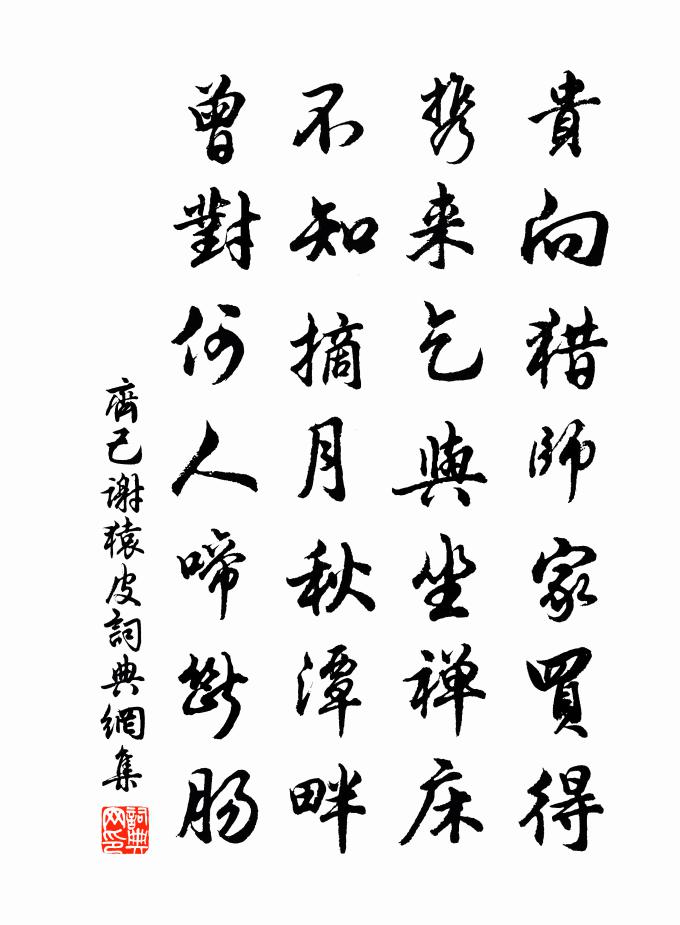 貴向猎師家買得
携来乞與坐禅床
不知摘月秋潭畔
曾對何人啼斷肠
齊己谢猿皮詞典網集
詞典网印